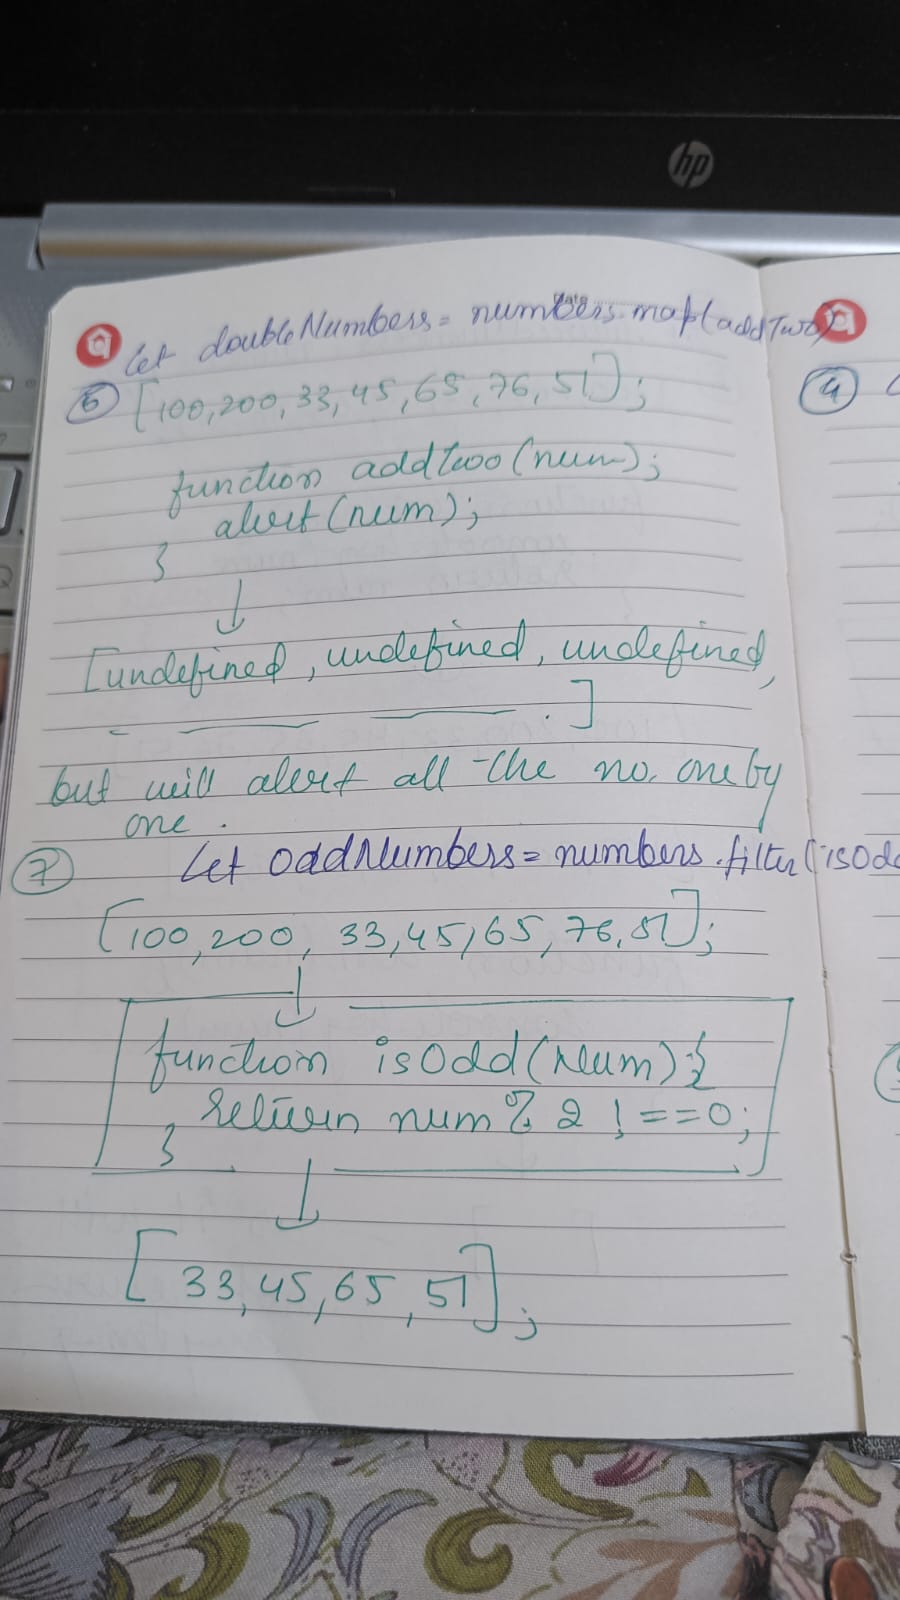 hp
Date
let doubleNumbers = numbers.map(addTwo)
6 [100,200,33,45,65,76,51];
function addTwo(num);
alert(num);
}
↓
[undefined, undefined, undefined,
.]
but will alert all the no. one by
one.
7 let oddNumbers = numbers.filter(isOdd
[100,200, 33,45,65,76,51];
↓
function isOdd(Num){
return num % 2 !==0;
}
↓
[33,45,65,51];
4